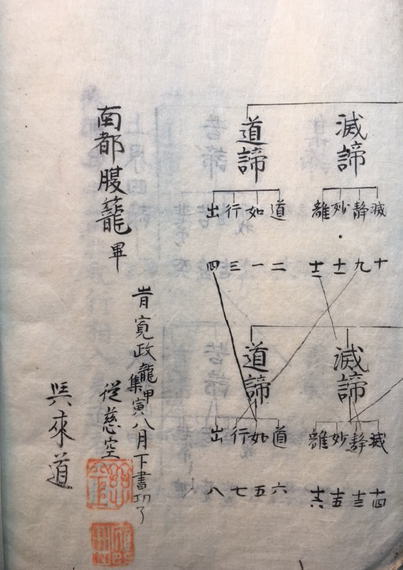 滅諦
滅静妙離
十 九 十一 十二
道諦
道如行出
二 一 三 四
滅諦
滅静妙離
十四 十三 十五 十六
道諦
道如行出
六 五 七 八
旹寛政龍集甲寅八月下書功了
南都腹蘢畢
從慈空
與來道